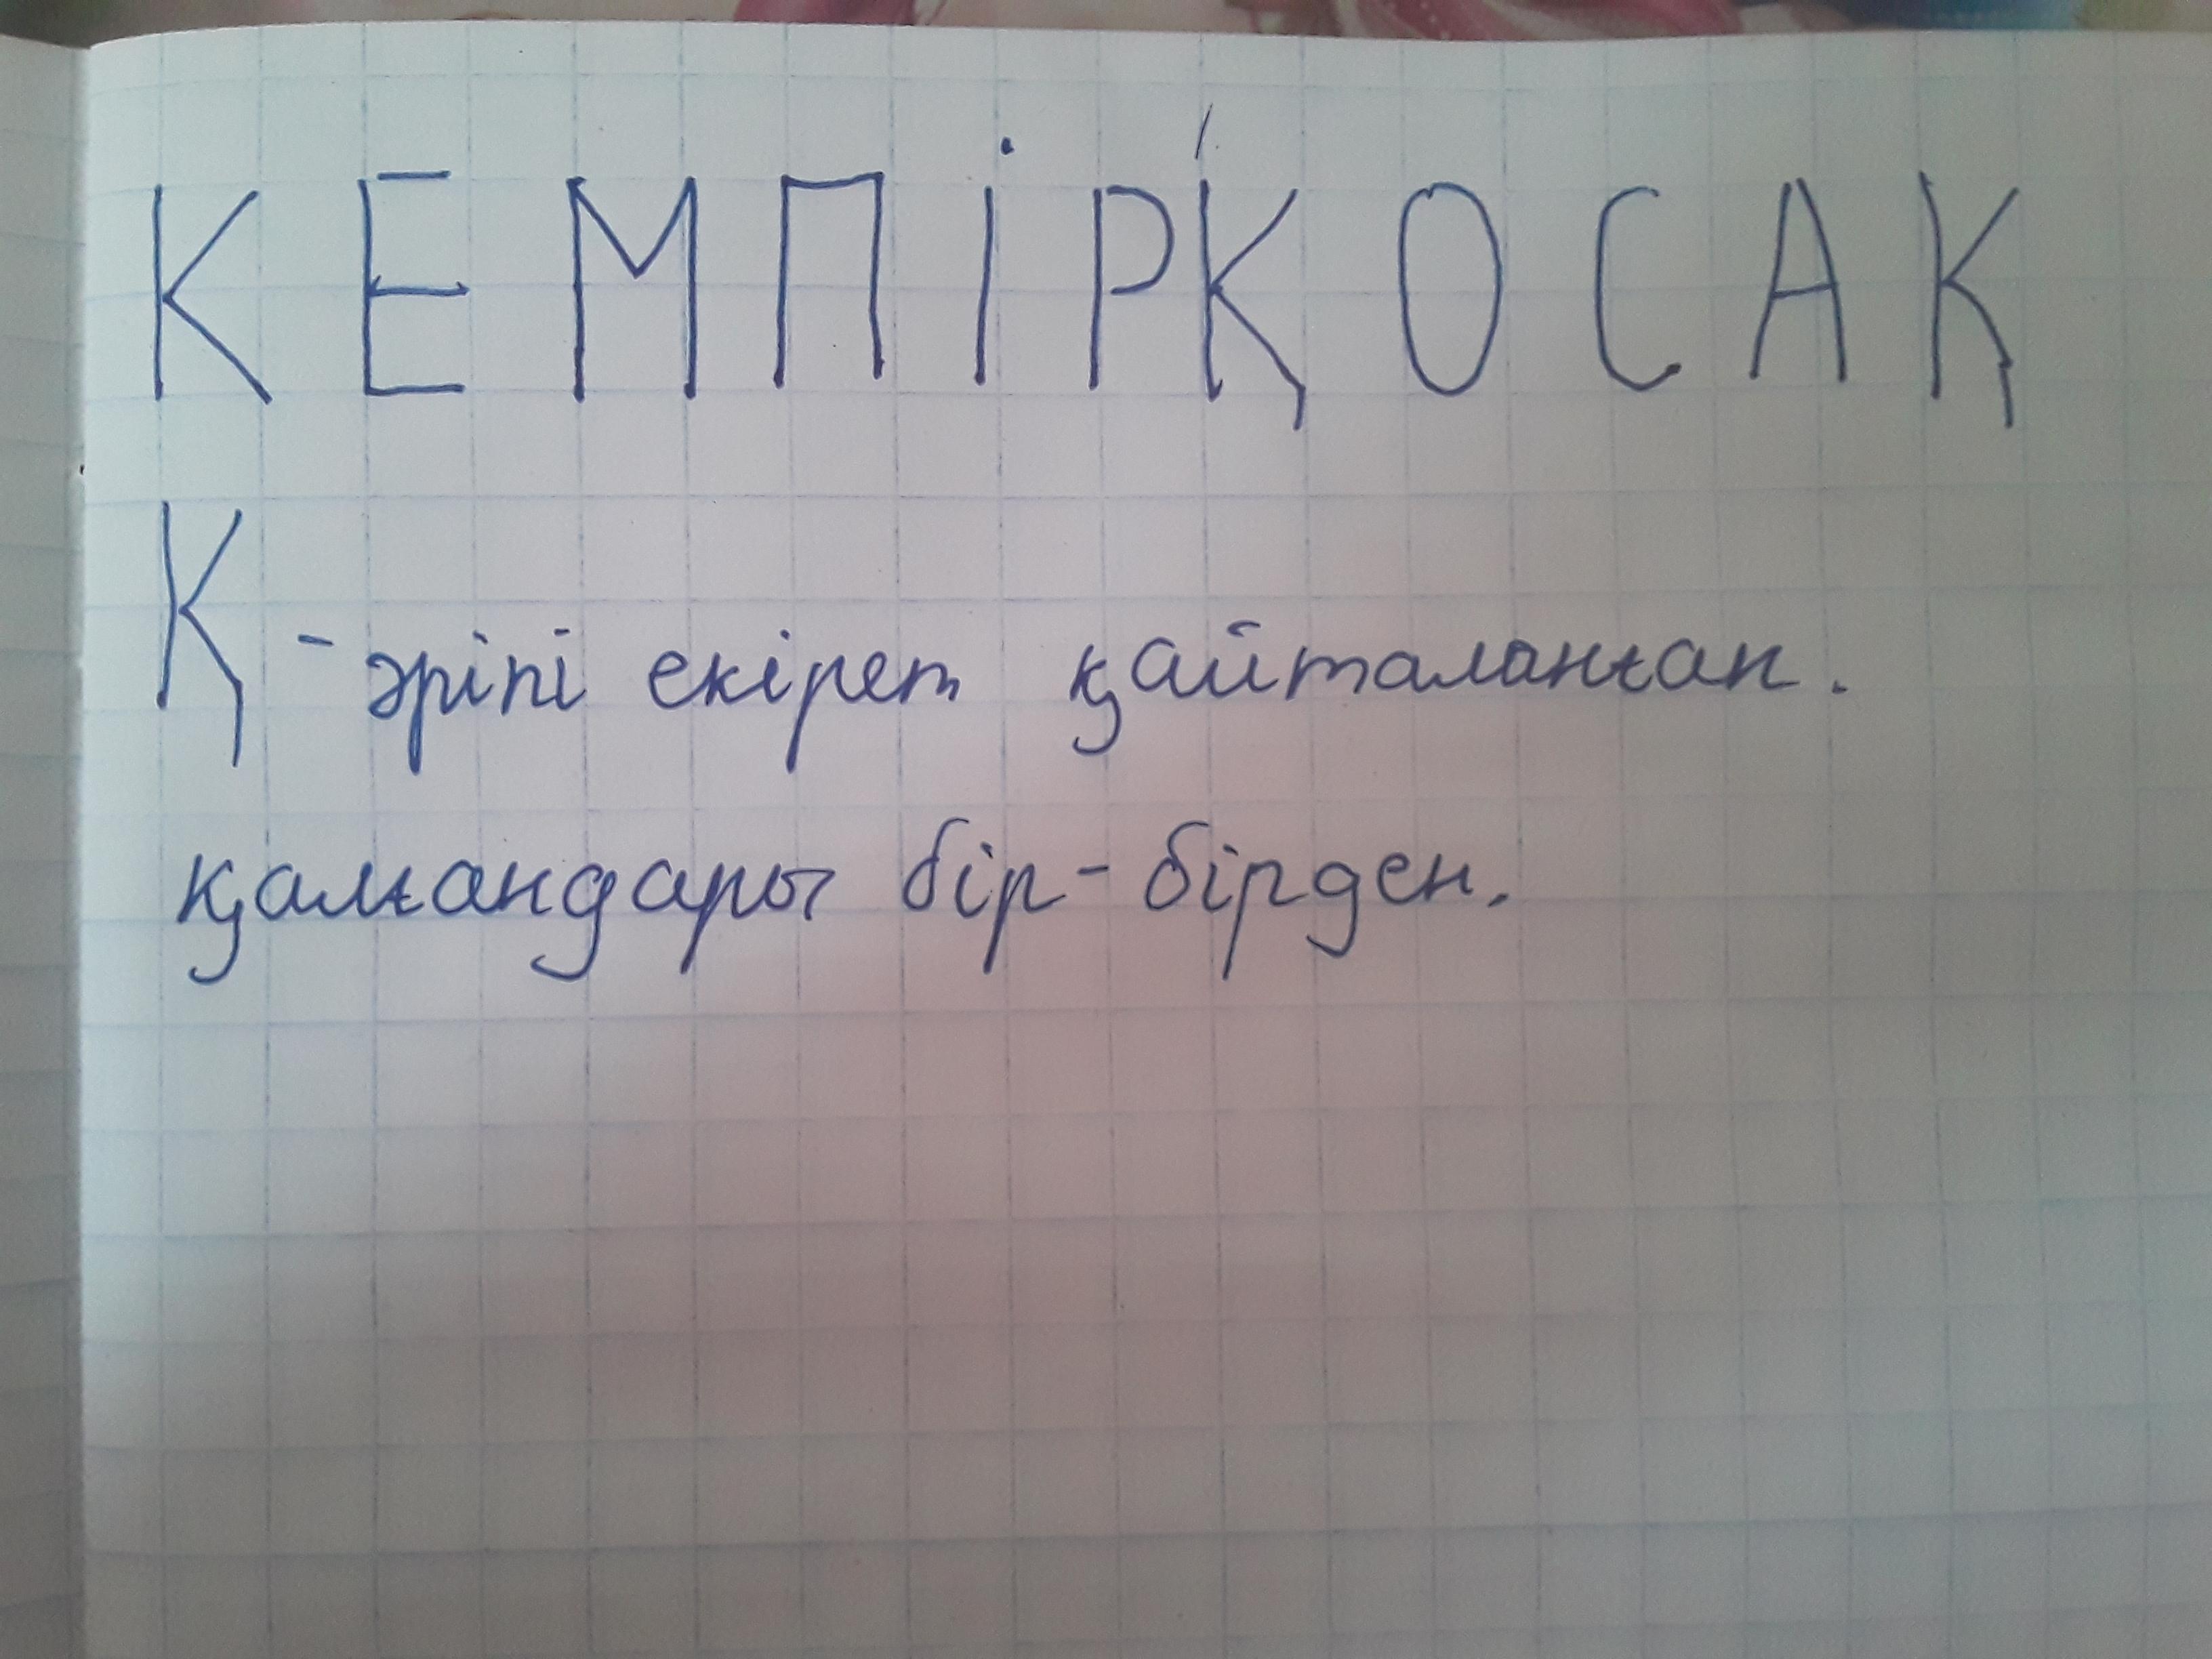 КЕМПІРҚОСАҚ
Қ - әріпі екірет қайталанған.
қалғандары бір-бірден.